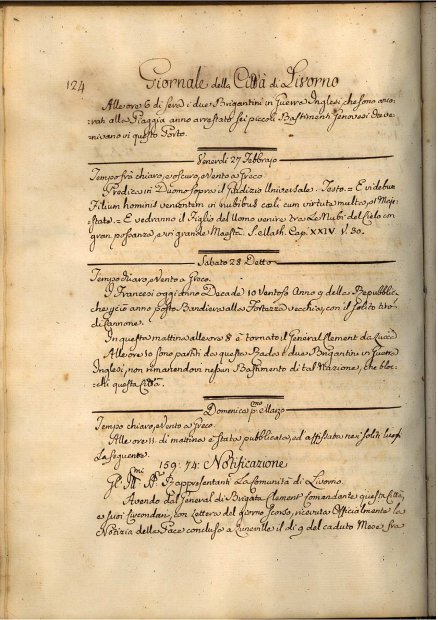 124
Giornale della Città di Livorno
Alle ore 6 di sera i due Brigantini in Guerra Inglesi che sono anco-
rati alla Piaggia anno arrestato sei piccoli Bastimenti Genovesi che ve-
nivano in questo Porto.
Venerdì 27 Febbrajo
Tempo frà chiaro, e oscuro, e Vento a Greco
Predica in Duomo sopra il Giudizio Universale. Testo. = Et videbunt
Filium hominis venientem in nubibus cœli cum virtute multa, et Maje-
state. = E vedranno il Figlio del Uomo venire tra le Nubi del Cielo con
gran possanza, e in grande Maestà. S. Matth. Cap. XXIV V. 30.
Sabato 28 Detto
Tempo chiaro, e Vento a Greco.
I Francesi oggi anno Decade 10 Ventoso Anno 9 della Repubbli-
che anno posto Bandiera alla Fortezza vecchia, con il solito tiro
di Cannone.
In questa mattina alle ore 8 è tornato il General Clement da Lucca
Alle ore 10 sono partiti da questa Rada i due Brigantini in Guerra
Inglesi, non rimanendovi nessun Bastimento di tal Nazione, che bloc-
chi questa Città.
Domenica p.mo Marzo
Tempo chiaro, e Vento a Greco.
Alle ore 11. di mattina è stata pubblicata, ed affissata nei soliti luoghi
La seguente
159: 74: Notificazione
Gl' Ill.mi SS. Rappresentanti La Comunità di Livorno.
Avendo dal General di Brigata Clement Comandante questa Città,
e suoi Circondari, con Lettera del giorno scorso, ricevuta Officialmente la
Notizia della Pace conclusa a Luneville il dì 9 del caduto Mese fra